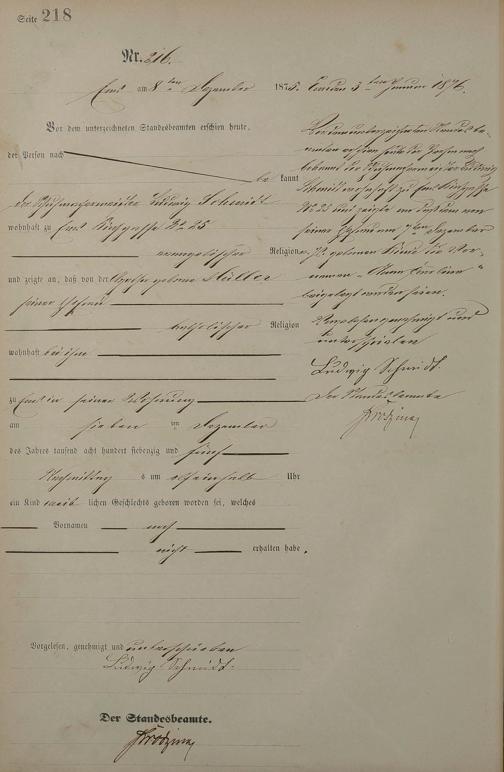 Seite 218
Nr. 216.
Ems am 8ten Dezember 1875.
Vor dem unterzeichneten Standesbeamten erschien heute,
der Person nach
be kannt
der Ludwig Schmidt
wohnhaft zu Ems Kirchgasse No 25
evangelischer Religion
und zeigte an, daß von der geborne Müller
seiner Ehefrau
katholischer Religion
wohnhaft bei ihm
zu Ems in seiner Wohnung
am sieben ten Dezember
des Jahres tausend acht hundert siebenzig und fünf
Nachmittags um Uhr
ein Kind weib lichen Geschlechts geboren worden sei, welches
Vornamen noch
nicht erhalten habe.
Vorgelesen, genehmigt und unterschrieben
Ludwig Schmidt.
Der Standesbeamte.
Ems den 3ten Januar 1876.
Vor dem unterzeichneten Standesbe-
amten erschien heute der Person nach
bekannt der Ludwig
Schmidt wohnhaft zu Ems Kirchgasse
No 25 und zeigte an, daß dem von
seiner Ehefrau am 7ten Dezember
geborenen Kinde die Vor-
namen
beigelegt worden seien.
Vorgelesen genehmigt und
unterschrieben
Ludwig Schmidt.
Der Standesbeamte